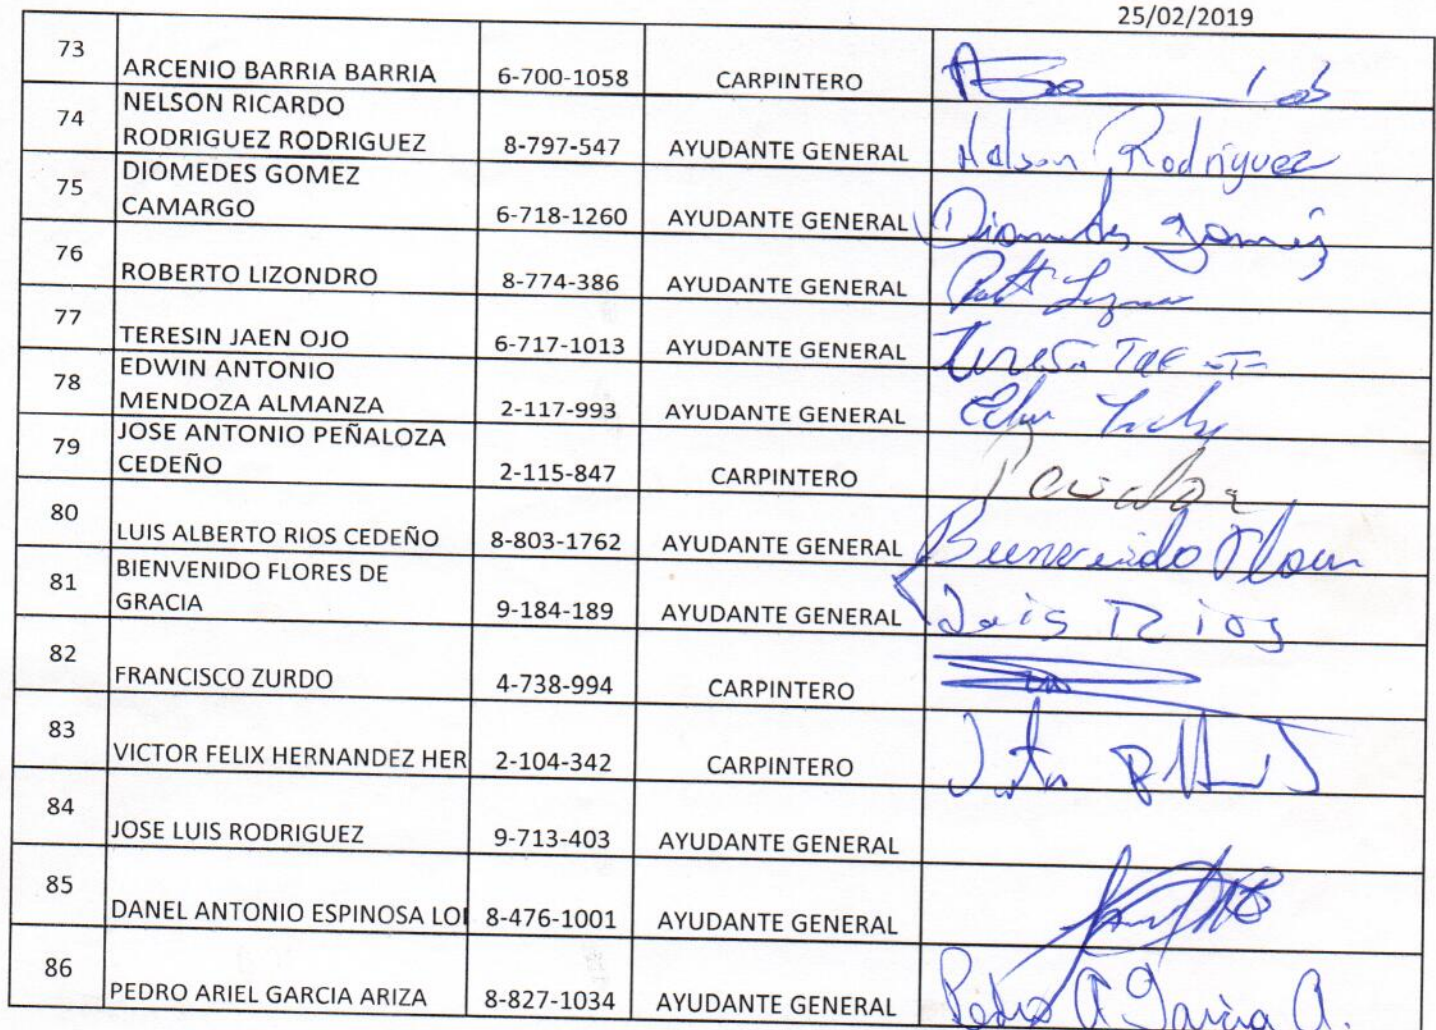 25/02/2019
73 ARCENIO BARRIA BARRIA 6-700-1058 CARPINTERO
74 NELSON RICARDO
RODRIGUEZ RODRIGUEZ 8-797-547 AYUDANTE GENERAL Nelson Rodriguez
75 DIOMEDES GOMEZ
CAMARGO 6-718-1260 AYUDANTE GENERAL Diomedes Gomez
76 ROBERTO LIZONDRO 8-774-386 AYUDANTE GENERAL
77 TERESIN JAEN OJO 6-717-1013 AYUDANTE GENERAL
78 EDWIN ANTONIO
MENDOZA ALMANZA 2-117-993 AYUDANTE GENERAL
79 JOSE ANTONIO PEÑALOZA
CEDEÑO 2-115-847 CARPINTERO
80 LUIS ALBERTO RIOS CEDEÑO 8-803-1762 AYUDANTE GENERAL Bienvenido Flores
81 BIENVENIDO FLORES DE
GRACIA 9-184-189 AYUDANTE GENERAL Luis Rios
82 FRANCISCO ZURDO 4-738-994 CARPINTERO
83 VICTOR FELIX HERNANDEZ HER 2-104-342 CARPINTERO
84 JOSE LUIS RODRIGUEZ 9-713-403 AYUDANTE GENERAL
85 DANEL ANTONIO ESPINOSA LO 8-476-1001 AYUDANTE GENERAL
86 PEDRO ARIEL GARCIA ARIZA 8-827-1034 AYUDANTE GENERAL Pedro A Garcia A.